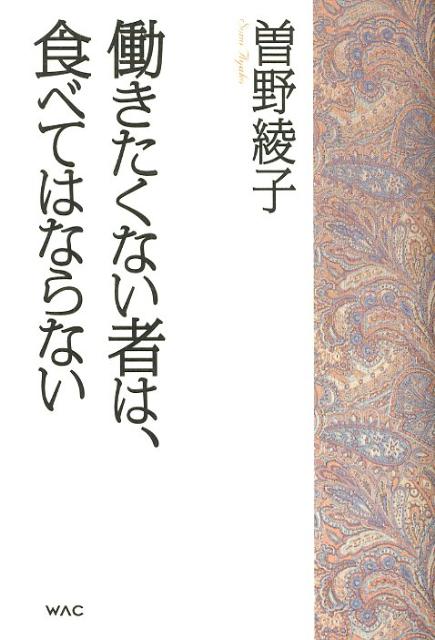 曽野綾子
Sono Ayako
働きたくない者は、
食べてはならない
WAC